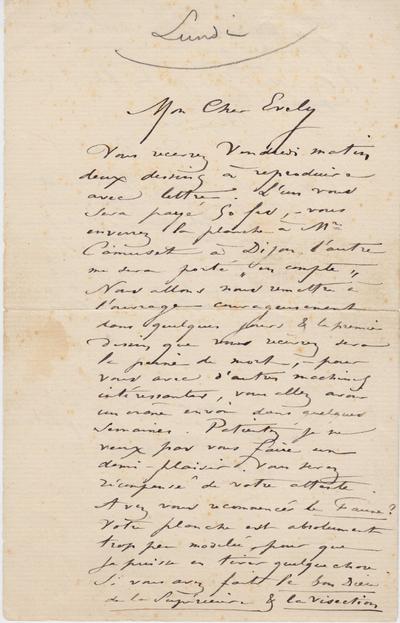 Lundi
Mon Cher Evely
Vous recevrez Vendredi matin
deux dessins à reproduire
avec lettre. L'un vous
sera payé 50 frs, - vous
enverrez la planche à Mr
Camuset à Dijon l'autre
me sera porté "en compte"
Nous allons nous remettre à
l'ouvrage courageusement
dans quelques jours & le premier
dessin que vous recevrez sera
la peine de mort, - pour
vous avec d'autres machines
intéressantes, vous allez avoir
un envoi dans quelques
semaines. Patientez je ne
veux pas vous faire un
demi-plaisir. Vous serez
récompensé de votre attente.
Avez vous recommencé le Faune?
Votre planche est absolument
trop peu modelée pour que
je puisse en tirer quelque chose
Si vous avez fait le Bon Dieu
de la Supérieure & la visection